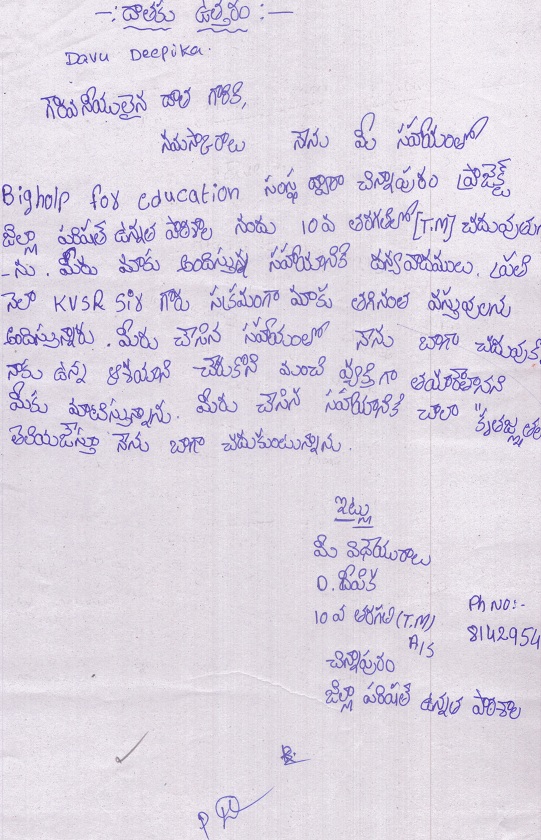 -: దాతకు ఉత్తరం :-
Davu Deepika.
గౌరవనీయులైన దాత గారికి,
నమస్కారాలు నేను మీ సహాయంలో
Bighelp for education సంస్థ ద్వారా చిన్నాపురం ప్రాజెక్ట్
జిల్లా పరిషత్ ఉన్నత పాఠశాల నందు 10వ తరగతిలో [T.M] చదువుతు
-ను. మీరు మాకు అందిస్తున్న సహాయానికి ధన్యవాదములు. ప్రతి
నెలా KVSR Sir గారు సక్రమంగా మాకు తగినంత వస్తువులను
అందిస్తున్నారు. మీరు చేసిన సహాయంలో నేను బాగా చదువుకొ
నాకు ఉన్న ఆశయాని చేరుకొని మంచి వ్యక్తి గా తయారవుతానని
మీకు మాటిస్తున్నాను. మీరు చేసిన సహాయానికి చాలా "కృతజ్ఞత
తెలియజేస్తూ నేను బాగా చదుకుంటున్నాను.
ఇట్లు
మీ విధేయురాలు
D. దీపిక
10 వ తరగతి (T.M)
A/S
Ph NO:-
8142954
చిన్నాపురం
జిల్లా పరిషత్ ఉన్నత పాఠశాల